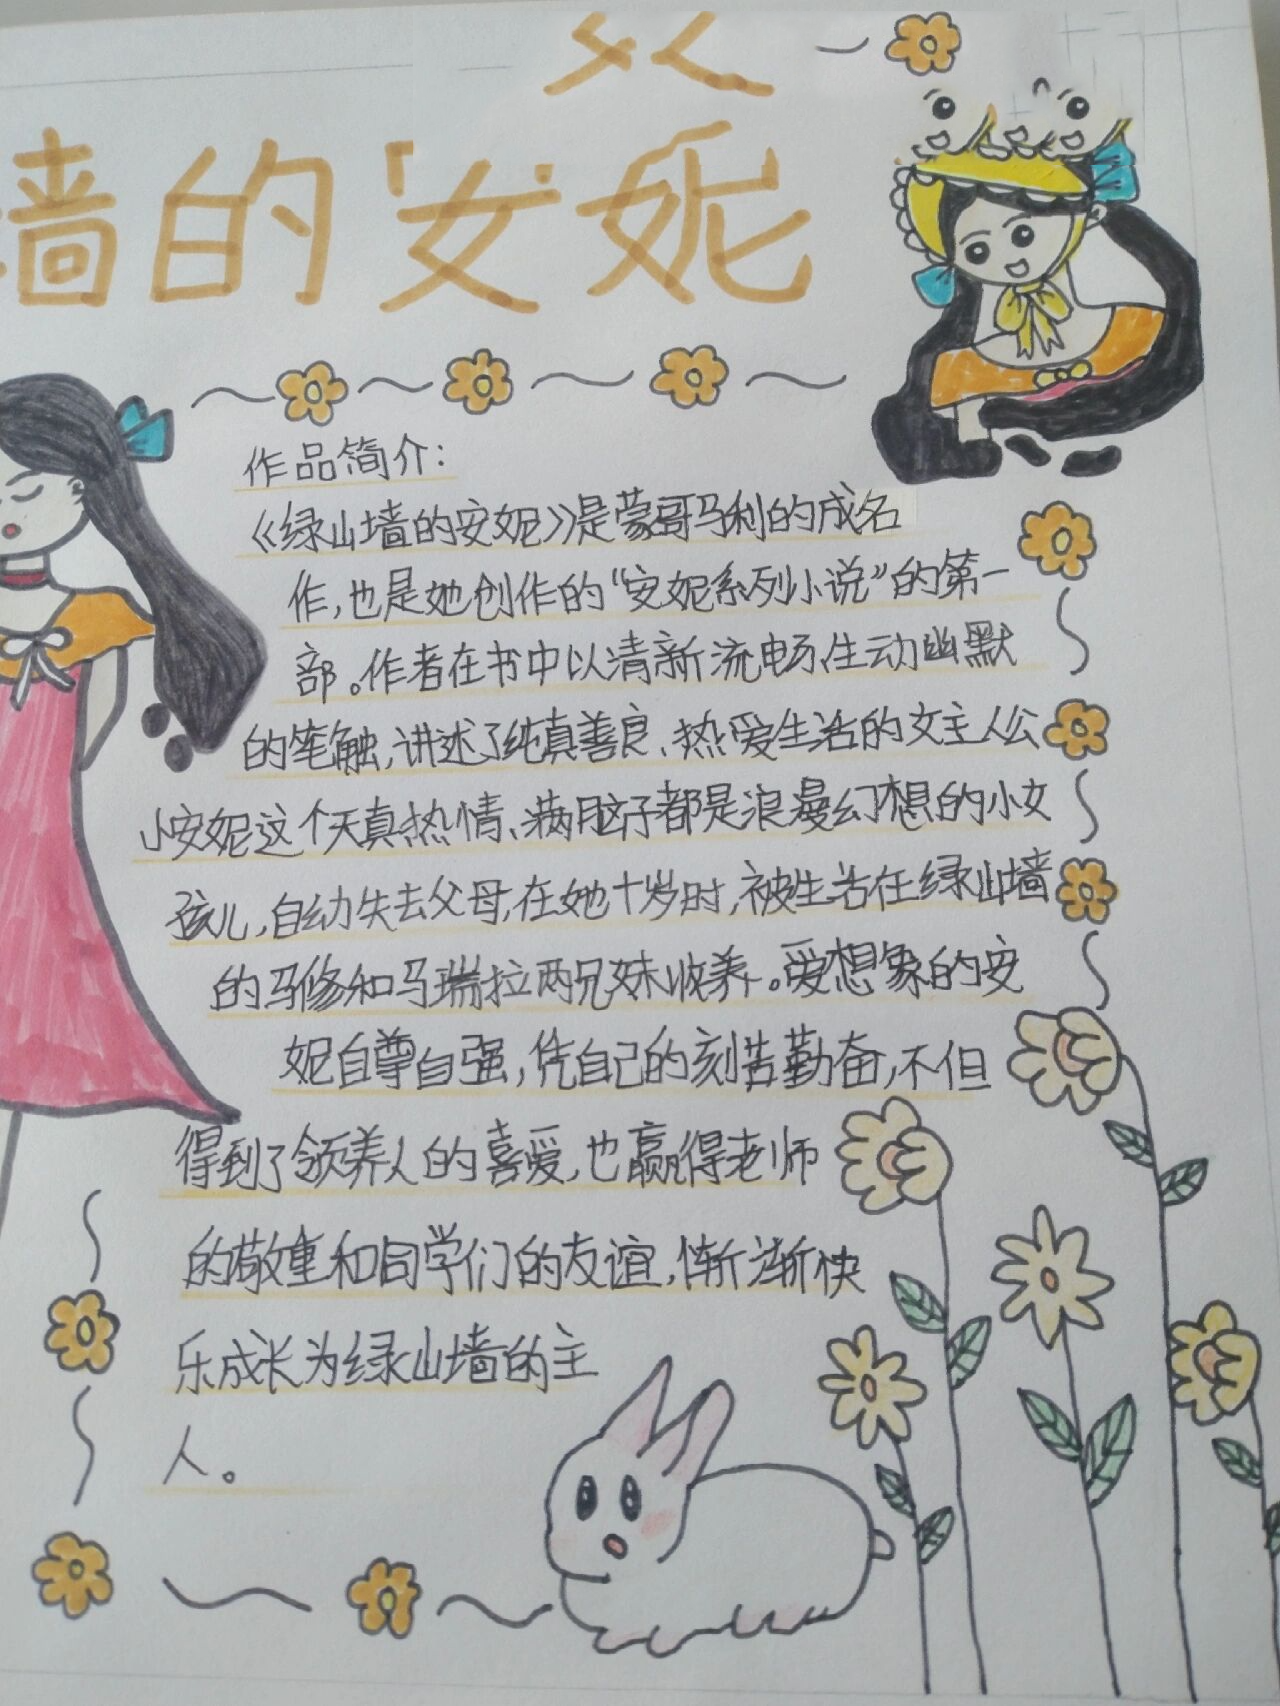 墙的安妮
作品简介:
《绿山墙的安妮》是蒙哥马利的成名
作,也是她创作的“安妮系列小说”的第一
部。作者在书中以清新流畅、生动幽默
的笔触,讲述了纯真善良、热爱生活的女主人公
小安妮这个天真热情、满脑子都是浪漫幻想的小女
孩儿,自幼失去父母,在她十岁时,被生活在绿山墙
的马修和马瑞拉两兄妹收养。爱想象的安
妮自尊自强,凭自己的刻苦勤奋,不但
得到了领养人的喜爱,也赢得老师
的敬重和同学们的友谊,惭渐快
乐成长为绿山墙的主
人。